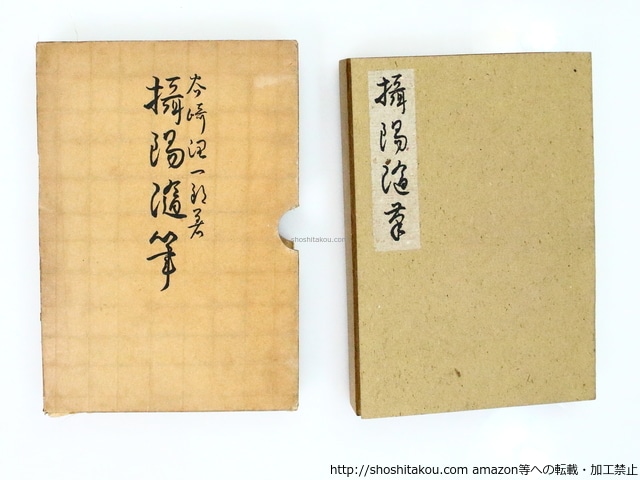 谷崎潤一郎著
攝陽随筆
攝陽随筆
shoshitakou.com
http://shoshitakou.com amazon等への転載・加工禁止